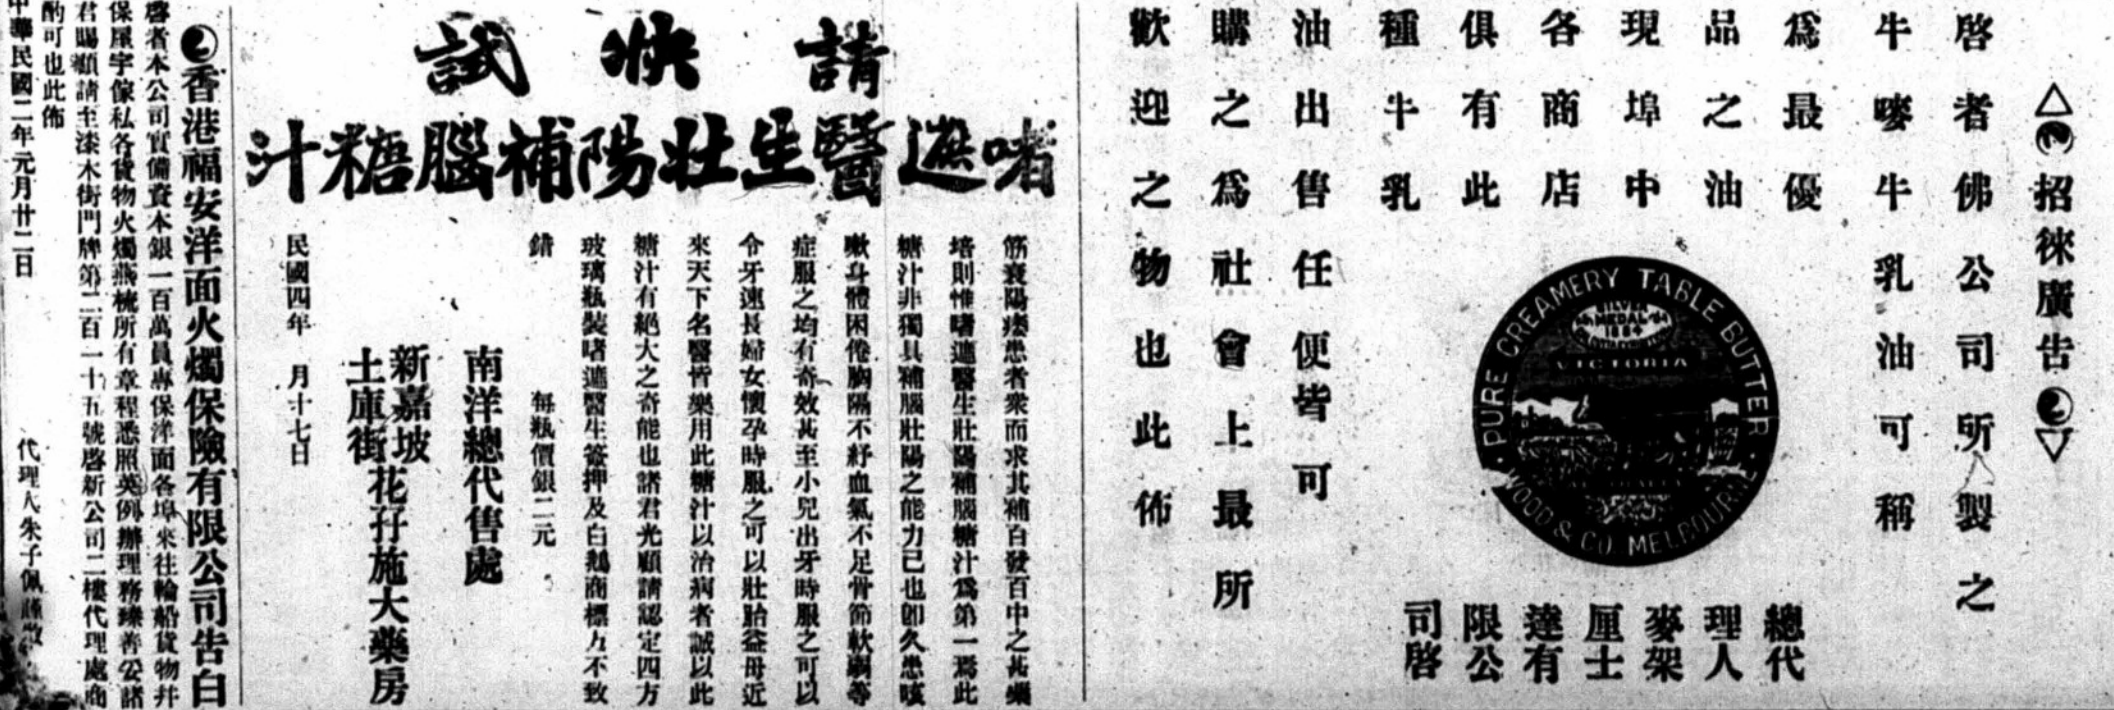 招徠廣告
啓者佛公司所製之
牛嘜牛乳油可稱
爲最優
品之油
現埠中
各商店
俱有此
種牛乳
油出售任便皆可
購之爲社會上最所
歡迎之物也此佈
PURE CREAMERY TABLE BUTTER
SILVER
MEDAL
VICTORIA
WOOD & CO. MELBOURNE
總代
理人
麥架
厘士
達有
限公
司啓
請快試
啫遮醫生壯陽補腦糖汁
筋衰陽痿患者衆而求其補百發百中之甚
培則惟啫遮醫生壯陽補腦糖汁爲第一焉此
糖汁非獨具補腦壯陽之能力已也卽久患咳
嗽身體困倦胸隔不紓血氣不足骨節軟弱等
症服之均有奇效甚至小兒出牙時服之可以
令牙速長婦女懷孕時服之可以壯胎益母近
來天下名醫皆樂用此糖汁以治病者誠以此
糖汁有絕大之奇能也諸君光顧請認定四方
玻璃瓶裝啫遮醫生簽押及白鵝商標方不致
錯 每瓶價銀二元
南洋總代售處
新嘉坡
土庫街
花孖施大藥房
民國四年 月十七日
香港福安洋面火燭保險有限公司告白
啓者本公司實備資本銀一百萬員專保洋面各埠來往輪船貨物幷
保屋宇傢私各貨物火燭燕梳所有章程悉照英例辦理務臻善妥諸
君賜顧請至漆木街門牌第二百一十五號啓新公司二樓代理處商
酌可也此佈
中華民國二年元月廿二日 代理人朱子佩謹啟